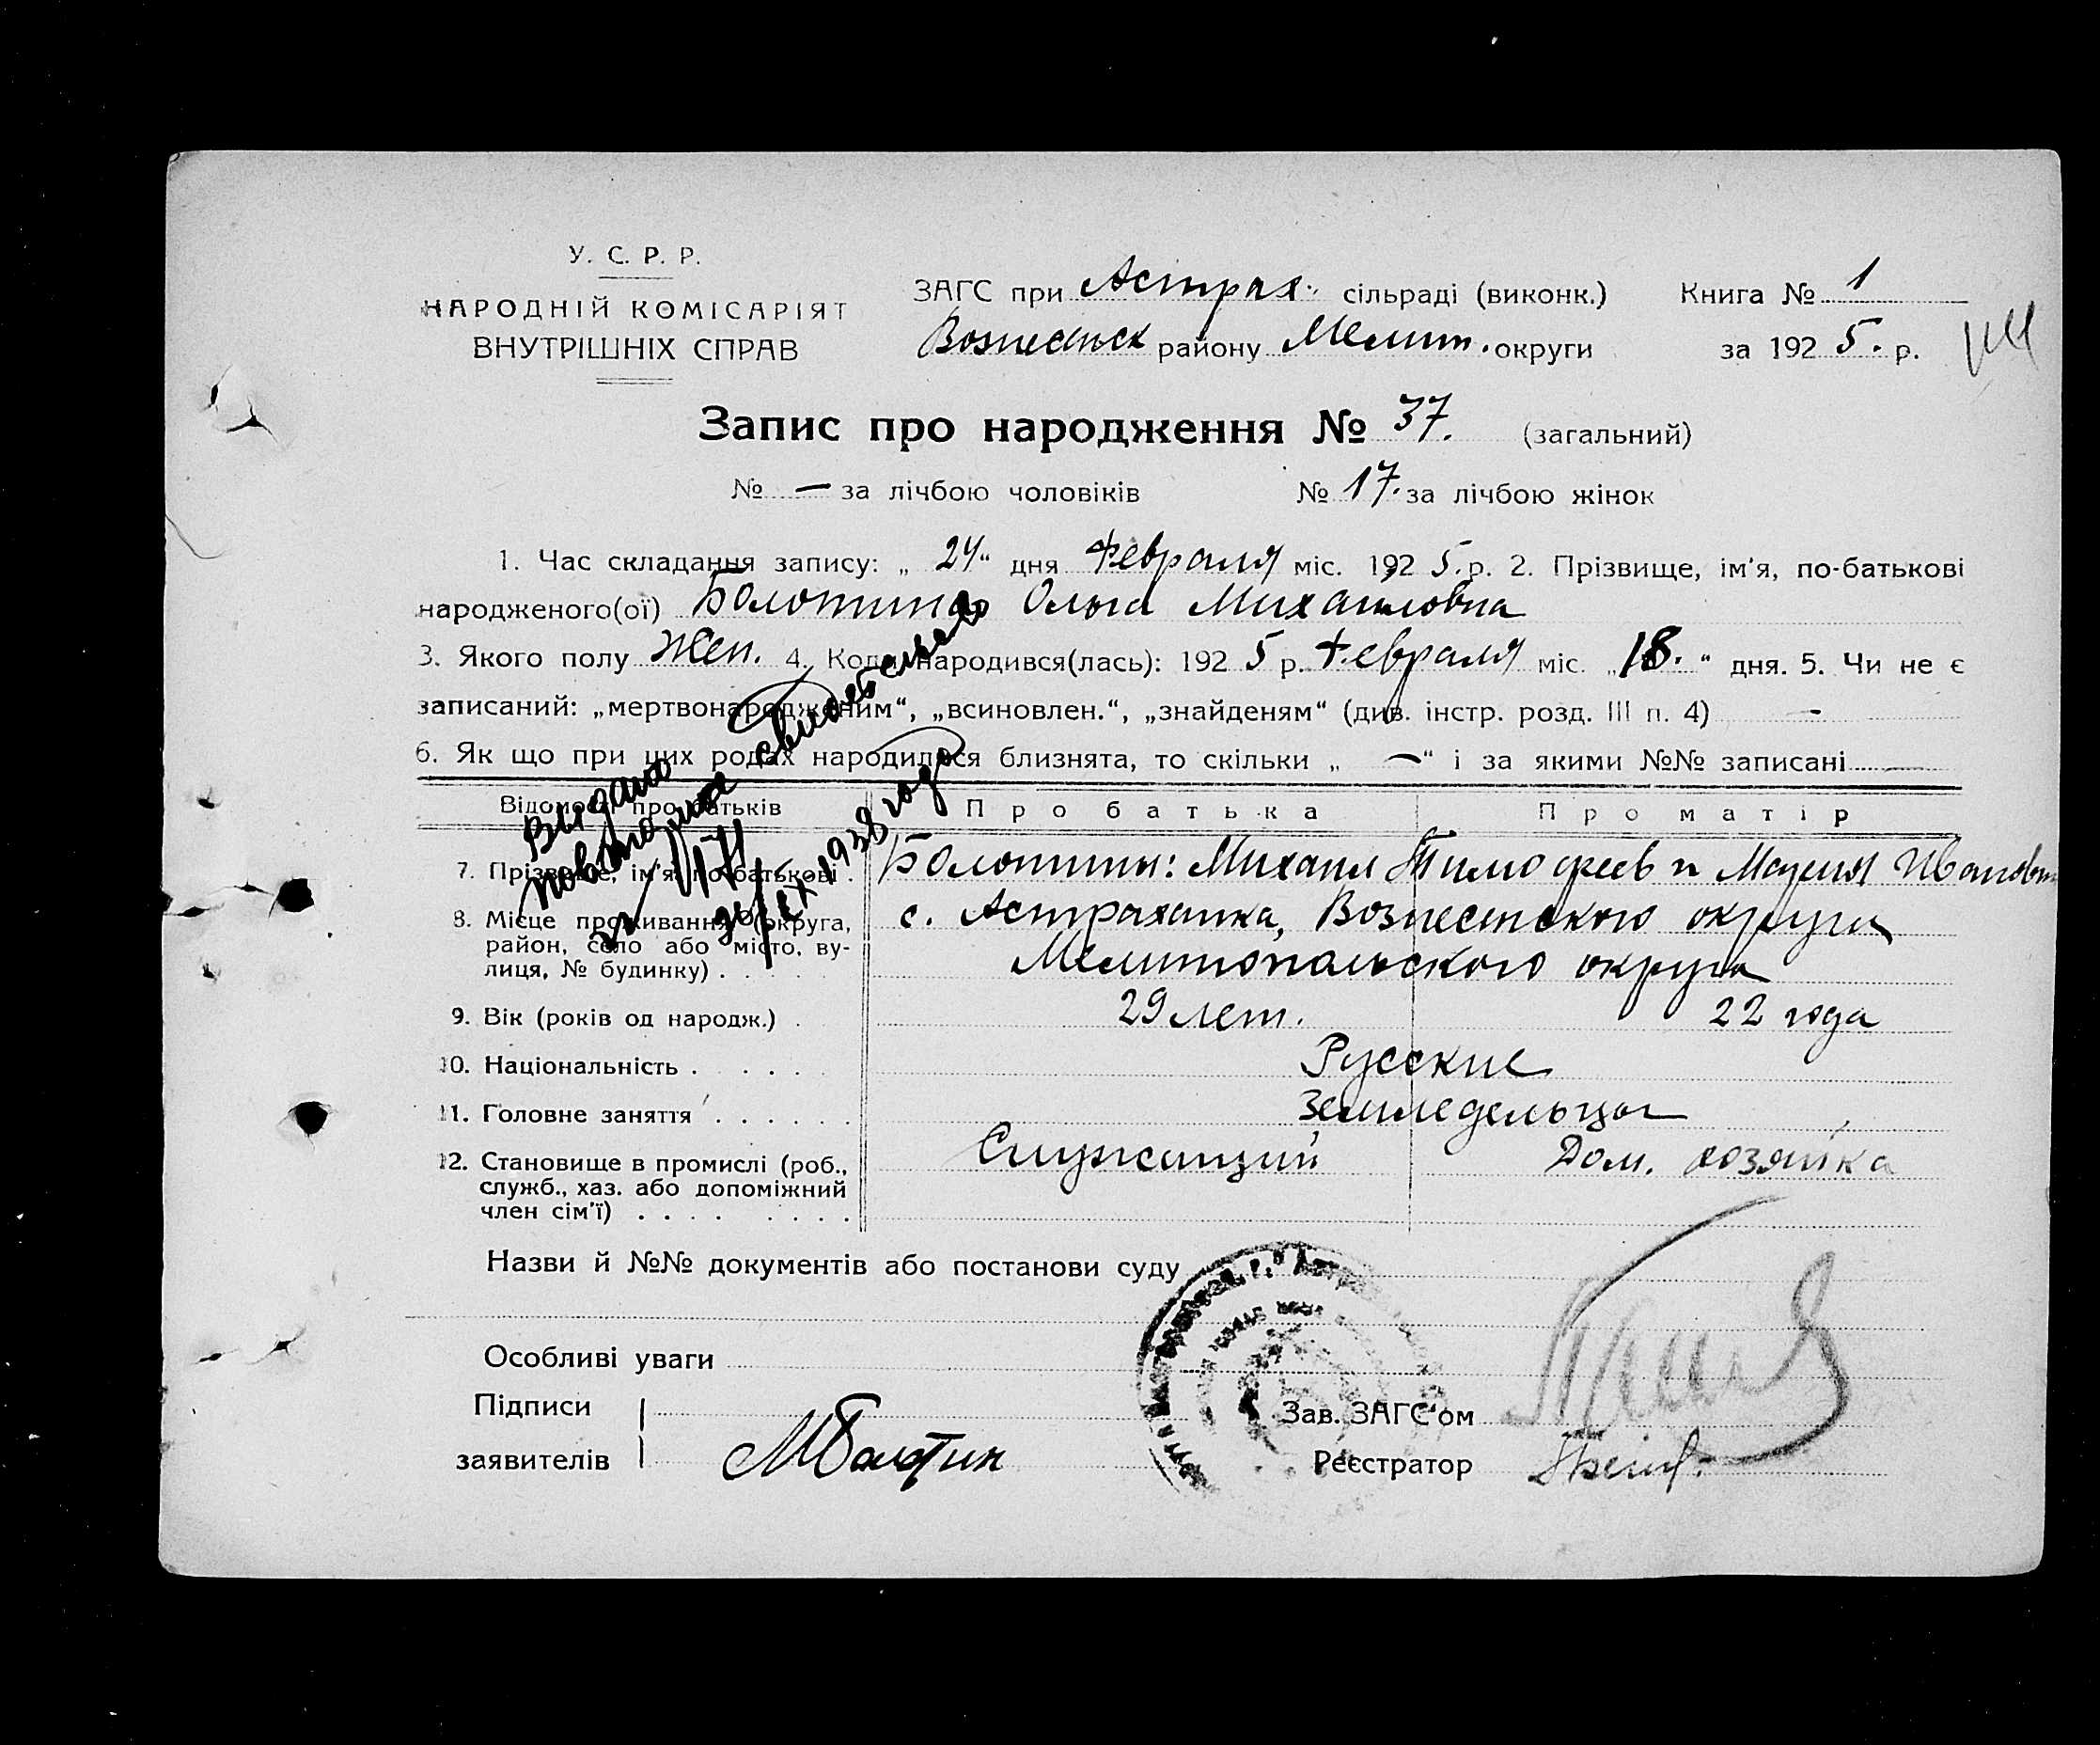 У. С. Р. Р.
НАРОДНІЙ КОМІСАРІЯТ
ВНУТРІШНІХ СПРАВ
ЗАГС при Астрах. сільраді (виконк.)
Вознесенск району Мелит. округи
Книга № 1
за 192 5. р.
Запис про народження № 37. (загальний)
№ — за лічбою чоловіків № 17. за лічбою жінок
1. Час складання запису: „ 24 “ дня Февраля міс. 192 5. р. 2. Прізвище, ім'я, по-батькові
народженого(ої) Болотина Ольга Михайловна
3. Якого полу Жен. 4. Коли народився(лась): 192 5 р. Февраля міс. „ 18. “ дня. 5. Чи не є
записаний: „мертвонародженим“, „всиновлен.“, „знайденям“ (див. інстр. розд. III п. 4) —
6. Як що при цих родах народилося близнята, то скільки „ — “ і за якими №№ записані —
Відомості про батьків Про батька Про матір
7. Прізвище, ім'я, по-батькові . Болотины: Михаил Тимофеев и Мария Ивановн
8. Місце проживання (округа, с. Астраханка, Вознесенского округи
район, село або місто, ву-
лиця, № будинку) . . . . Мелитопольского округа
9. Вік (років од народж.) . 29 лет. 22 года
10. Національність . . . . . Русские
11. Головне заняття . . . . . . Земледельцы
12. Становище в промислі (роб., Служащий Дом. хозяйка
служб., хаз. або допоміжний
член сім'ї) . . . . . . . .
Выдано
повторное свидетельство
IX 1938 года
Назви й №№ документів або постанови суду
Особливі уваги
Підписи
заявителів
МБолотин
Зав. ЗАГС'ом
Реєстратор